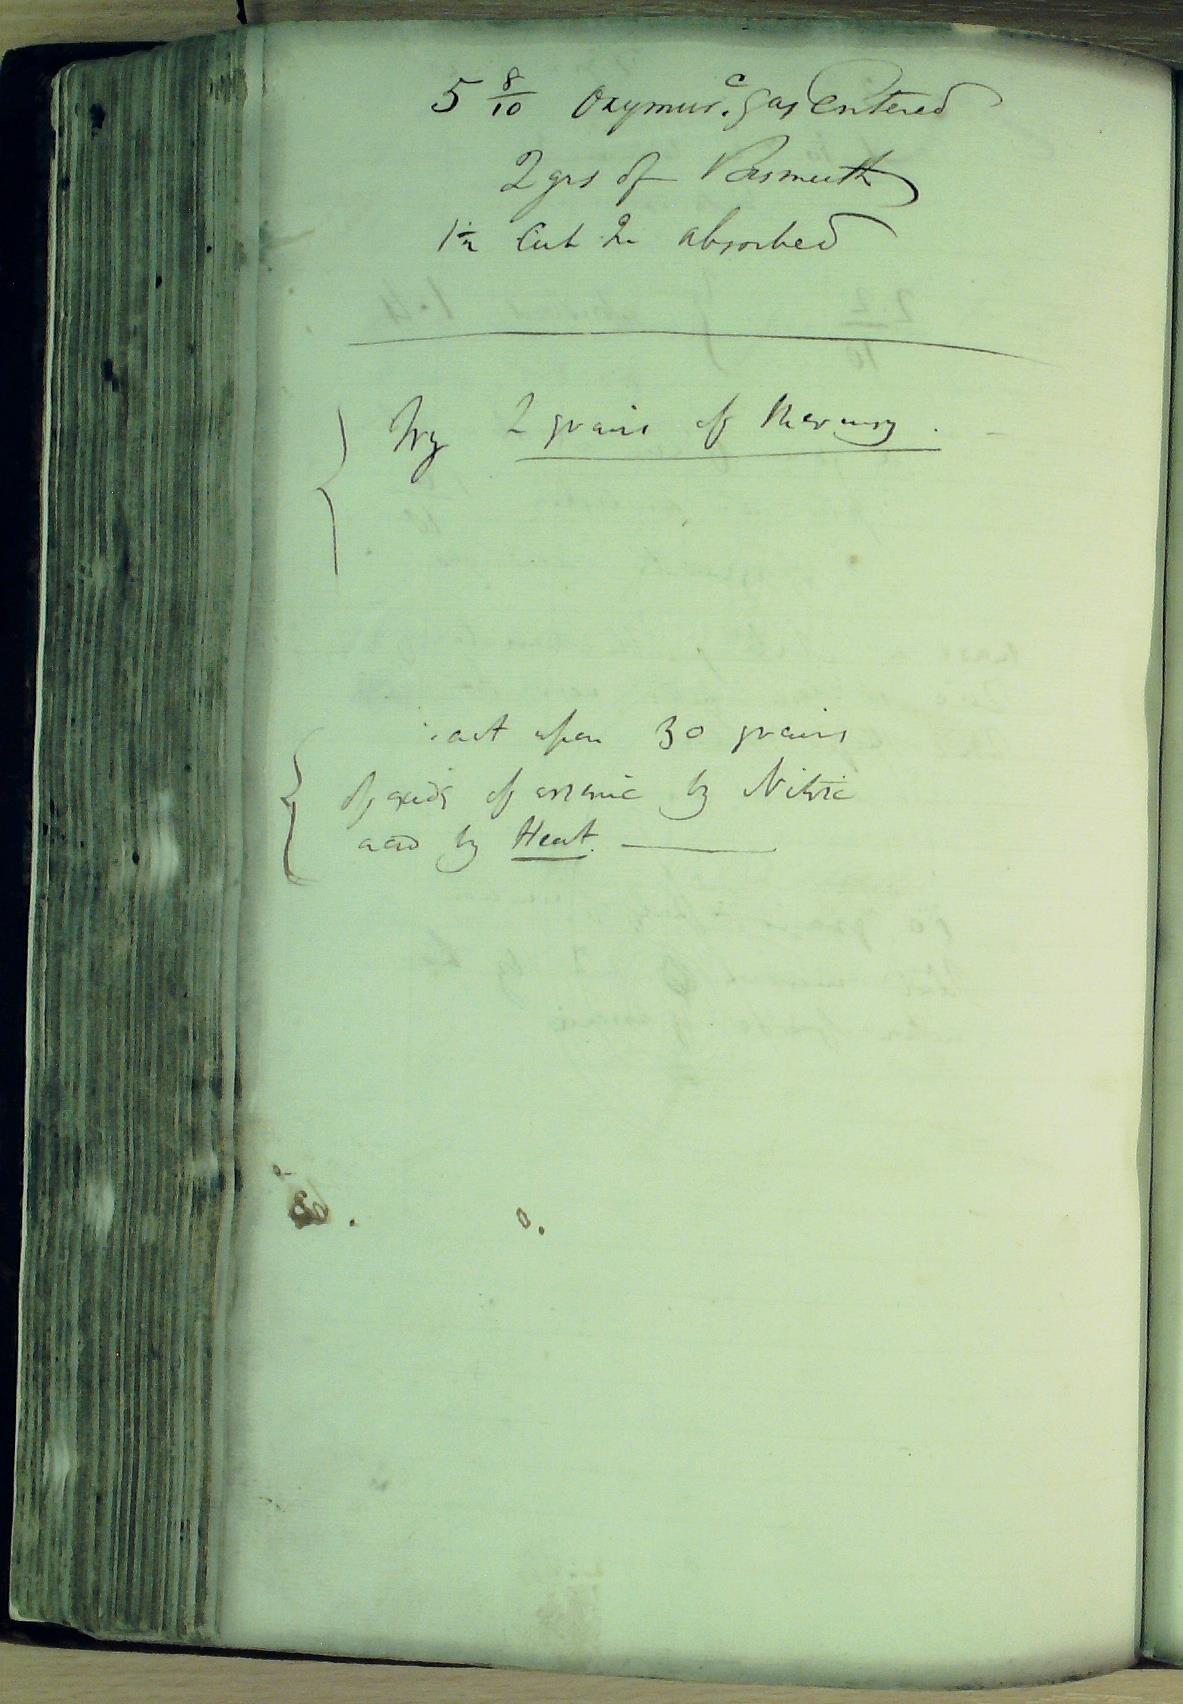 5 8/10 Oxymur.c gas entered
2 grs of Bismuth
1 1/2 Cub In absorbed
Try 2 grains of Mercury.
act upon 30 grains
of oxide of arsenic by Nitric
acid by Heat. —